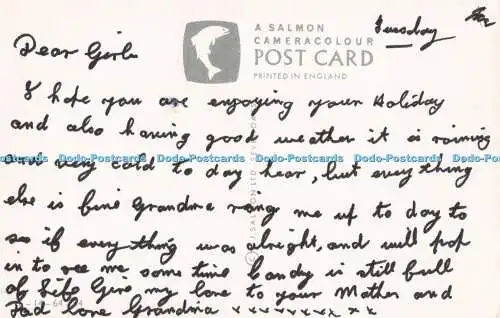 A SALMON
CAMERACOLOUR
POST CARD
PRINTED IN ENGLAND
Tuesday
Dear Girls
I hope you are enjoying your Holiday
and also having good weather it is raining
Dodo-Postcards Dodo-Postcards Dodo-Postcards Dodo-Postcards Dodo-Postcards
and very cold to day hear, but everything
else is fine Grandma rang me up to day to
see if everything was alright, and will pop
in to see me some time Candy is still full
of life Give my love to your Mother and
Dad love Grandma x x x x x x x x